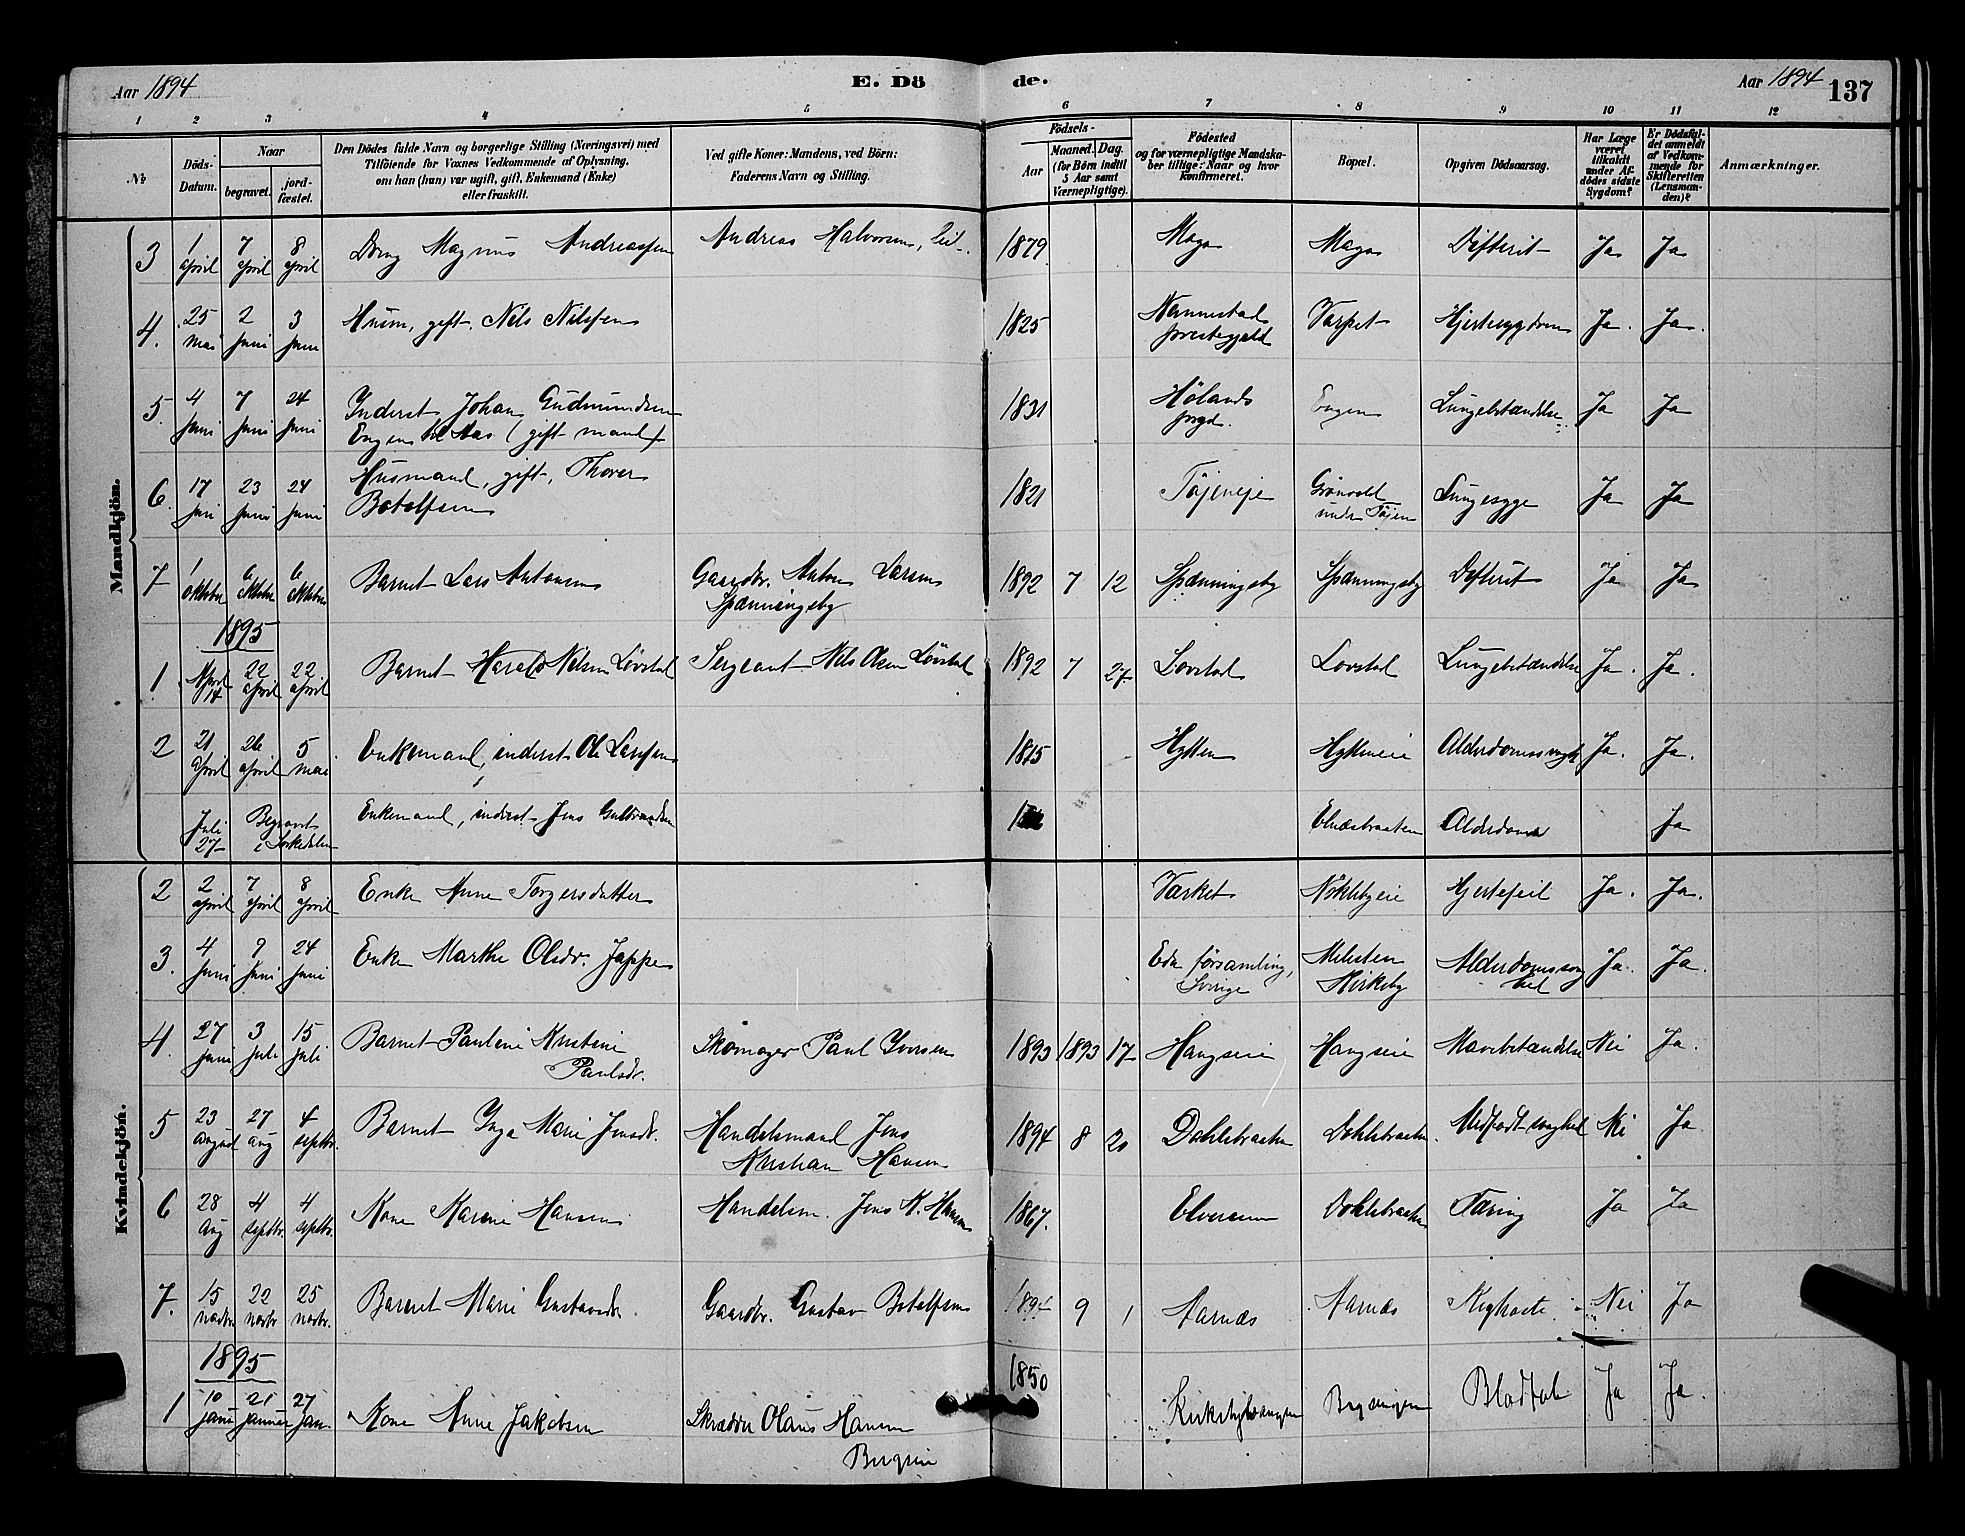 Aar 1894
E. Dö
de.
Aar 1894
137
1 2 3 4 5 6 7 8 9 10 11 12
№
Döds-Datum.
Naar
begravet.
jord-fæstet.
Den Dödes fulde Navn og borgerlige Stilling (Næringsvei) med
Tilföiende for Voxnes Vedkommende af Oplysning,
om han (hun) var ugift, gift, Enkemand (Enke)
eller fraskilt.
Ved gifte Koner: Mandens, ved Börn:
Faderens Navn og Stilling.
Födsels-
Aar
Maaned.
Dag.
(for Börn indtil
5 Aar samt
Værnepligtige).
Födested
og for værnepligtige Mandska-
ber tillige: Naar og hvor
konfirmeret.
Bopæl.
Opgiven Dödsaarsag.
Har Læge
været
tilkaldt
under Af-
dödes sidste
Sygdom?
Er Dödsfal-
det anmeldt
af Vedkom-
mende for
Skifteretten
(Lensman-
den)?
Anmærkninger.
Mandkjön.
3 1 april 7 april 8 april Magnus Andreassen Andreas Halvorsen, 1879 Difterit Ja Ja
4. 25 mai 2 juni 3 juni gift, Nils Nilssen 1825 Nannestad
præstegjeld Hjertesygdom Ja. Ja.
5. 4 juni 7 juni 24 juni Inderst Johan Gudmundsen
Engen til Aas (gift mand) 1831 Hølands
prgd. Engen Lungebetændelse Ja Ja
6. 17 juni 23 juni 24 juni Husmand, gift, Thorer
Botolfsen 1821 Töjeneje Grönvold
under Töjen Lungesyge Ja Ja
7 1 oktober 6 oktober 6 oktober Barnet Lars Antonsen Gaardbr. Anton Larsen
Spænningsby 1892 7 12 Spænningsby Spænningsby Difterit Ja Ja
1895
1 April 14 22 april 22 april Barnet Harald Nilsen Lövstad Sergeant Nils Olsen Lövstad 1892 7 27 Lovstad Lovstad Lungebetændelse Ja. Ja.
2 21 april 26 april 5 mai Enkemand, inderst Ole Larssen 1815 Hytten Hytteneie Alderdomssvagh. Ja. Ja.
Juli 27 Begravet
i Sørkedalen Enkemand, inderst Jens Gulbrandsen Alderdom Ja
Kvindekjön.
2 2 april 7 april 8 april Enke Anne Torgersdatter Værket Nöklebyeie Hjertefeil Ja. Ja.
3. 4 juni 9 juni 24 juni Enke Marthe Olsdr. Jappen Eda församling,
Sverige Milesten
Kirkeby Alderdomssvag
hed Ja. Ja.
4. 27 juni 3 juli 15 juli Barnet Pauline Kristine
Paulsdr. Skomager Paul Iversen 1893 1893 17 Haugseie Haugseie Mavebetændelse Nei Ja.
5 23 august 27 aug 4 septbr. Barnet Inga Marie Jensdr. Handelsmand Jens
Kristian Hansen 1894 8 20 Dahlsbraaten Dahlsbraaten. Medfødt svaghed Nei Ja
6 28 aug 4 septbr. 4 septbr. Kone Karine Hansen Handelsm. Jens K. Hansen 1867. Elverum Dahlsbraaten Tæring Ja Ja
7. 15 novbr 22 novbr 25 novbr. Barnet Marie Gustavsdr. Gaardbr. Gustav Botolfsen 1894 9 1 Aarnæs Aarnæs Kighoste Nei Ja
1895
1 10 janu 21 januar 27 jan. Kone Anne Jakobsen Skrædder Olaus Hansen
1850 Kirkeby Blodtab Ja Ja.